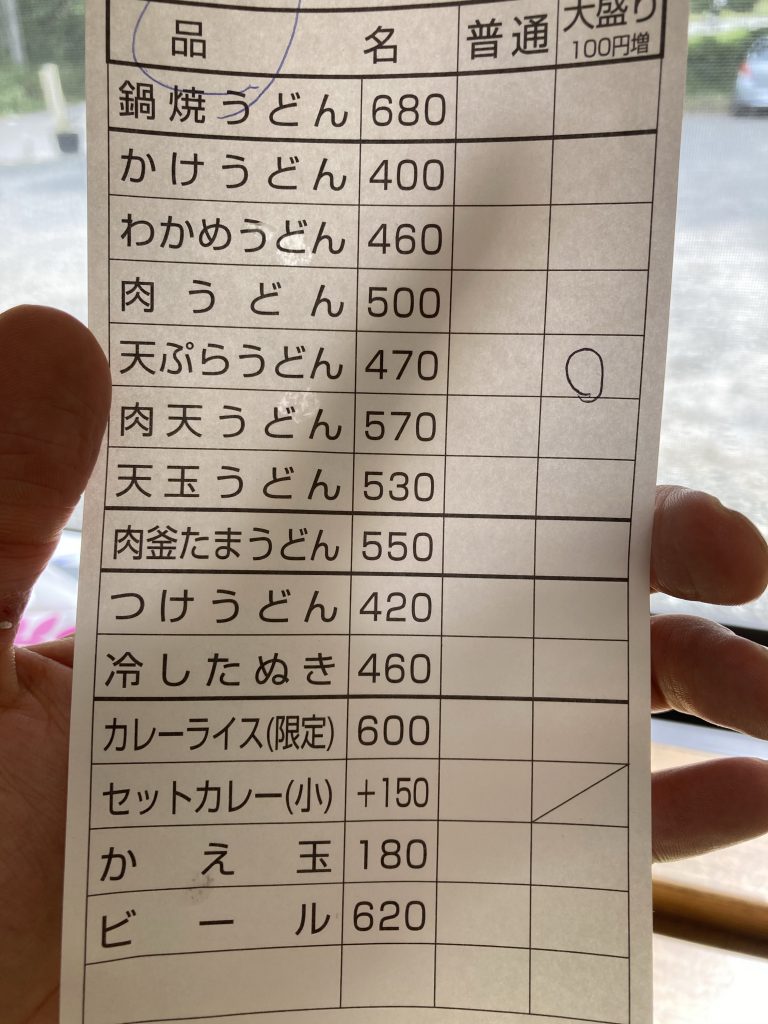 品 名 普通 大盛り 100円増
鍋焼うどん 680
かけうどん 400
わかめうどん 460
肉うどん 500
天ぷらうどん 470
肉天うどん 570
天玉うどん 530
肉釜たまうどん 550
つけうどん 420
冷したぬき 460
カレーライス(限定) 600
セットカレー(小) +150
かえ玉 180
ビール 620